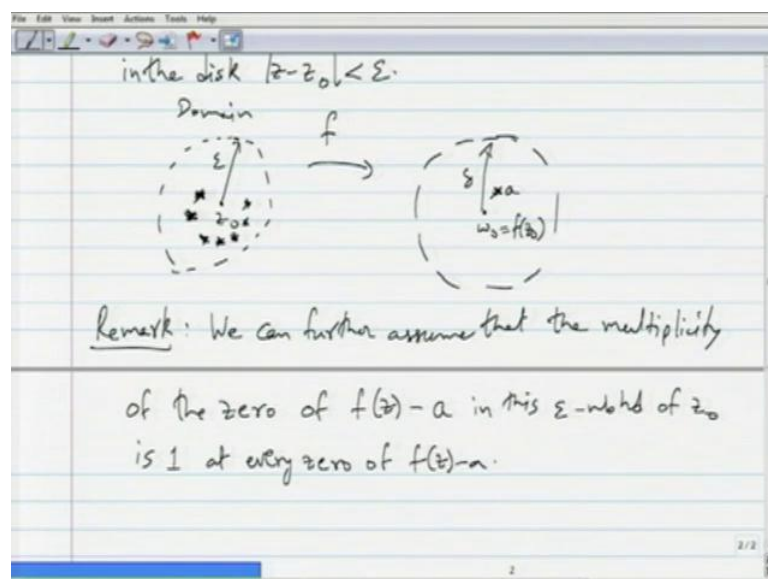 File Edit View Insert Actions Tools Help
in the disk |z-z₀| < ε.
Domain
f
ε
δ
a
z₀
w₀=f(z₀)
Remark: We can further assume that the multiplicity
of the zero of f(z)-a in this ε-nbhd of z₀
is 1 at every zero of f(z)-a.
2/2
2